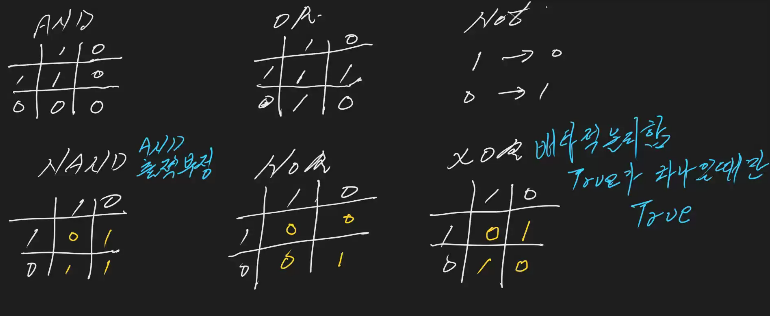 AND
1 0
1 1 0
0 0 0
OR
1 0
1 1 1
0 1 0
Not
1 → 0
0 → 1
NAND
AND
출력 부정
1 0
1 0 1
0 1 1
NOR
1 0
1 0 0
0 0 1
XOR 배타적 논리합
True가 하나 일때만
True
1 0
1 0 1
0 1 0